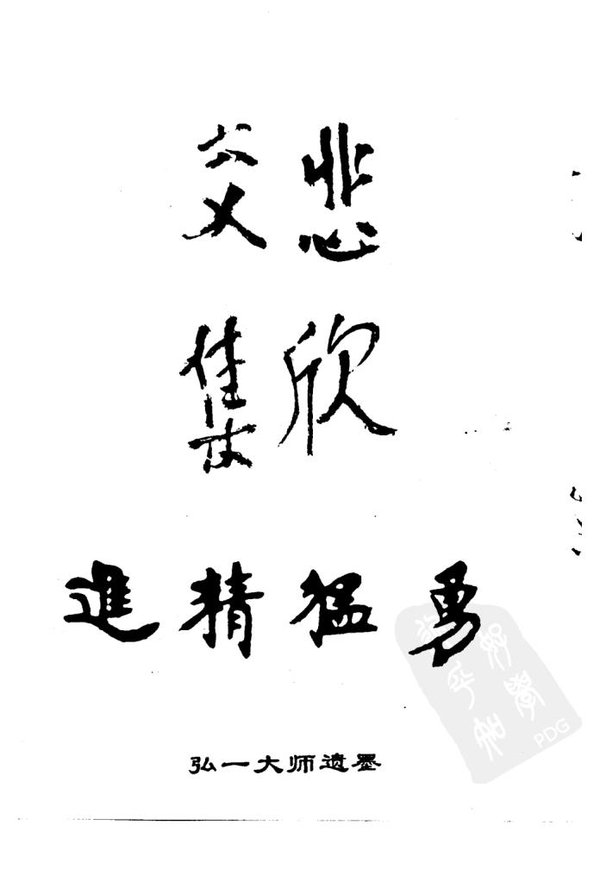 悲欣
交集
勇猛精進
弘一大师遗墨
PDG